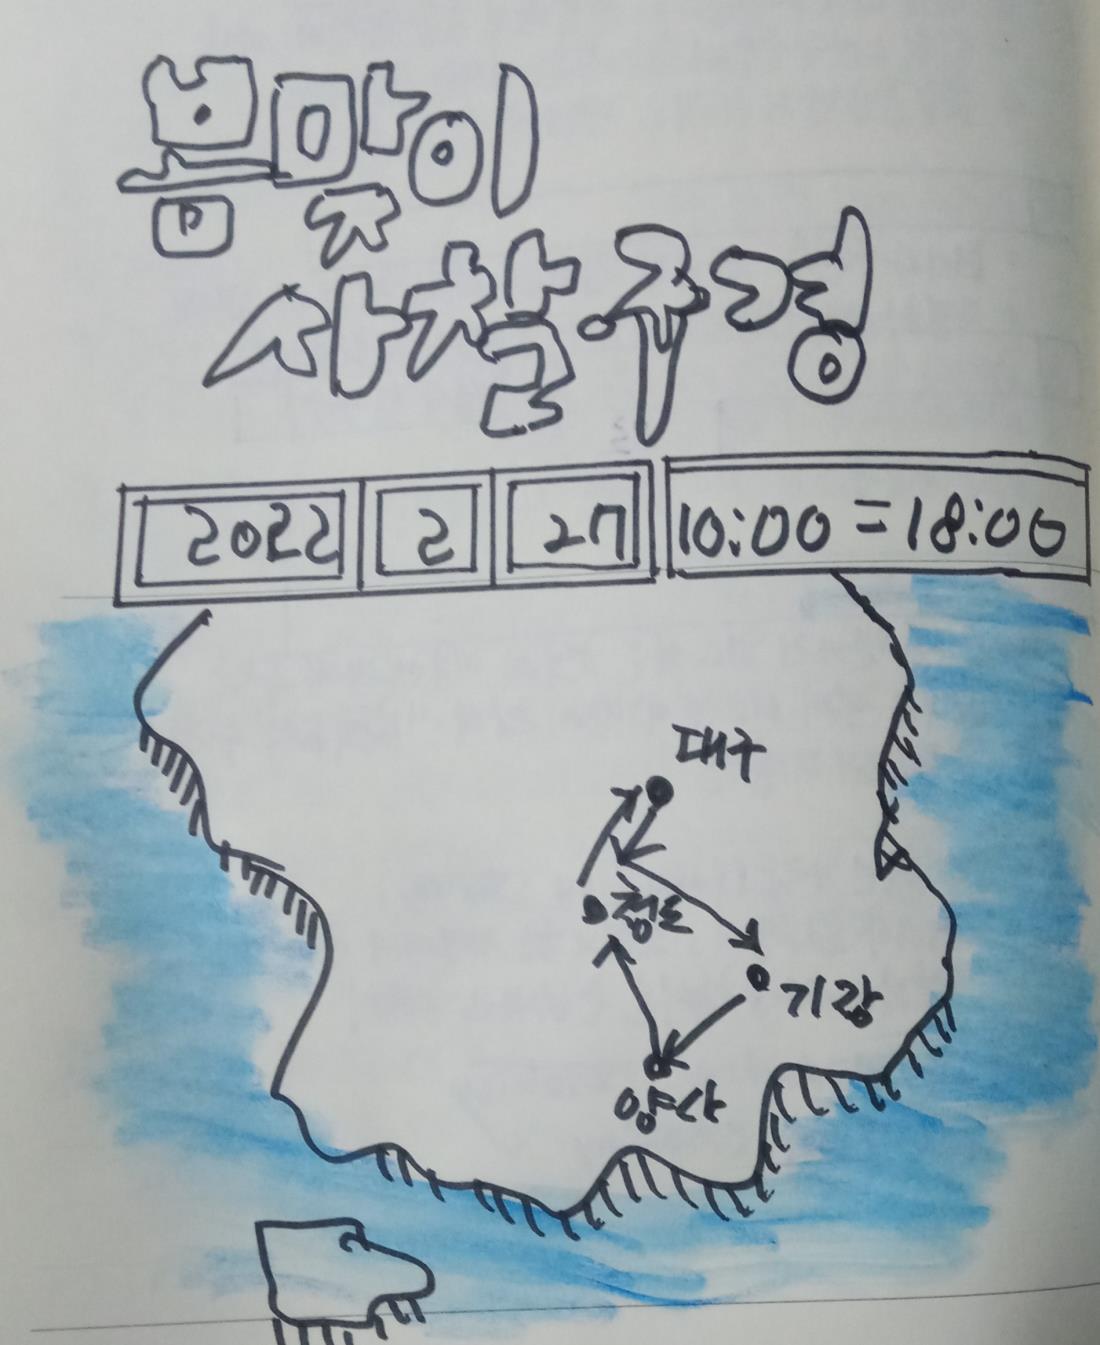 봄맞이
사찰구경
2022 2 27 10:00 = 18:00
대구
청도
기장
양산